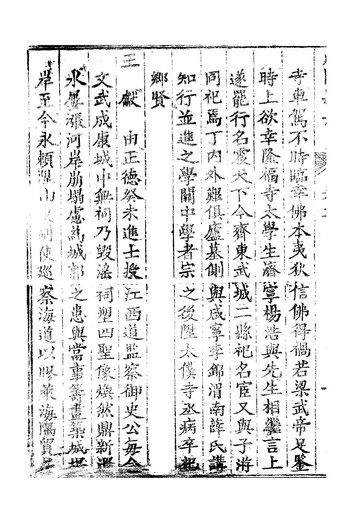 寺車駕不時臨幸佛本夷狄信佛得禍若梁武帝足鑒
時上欲幸隆福寺太學生濟寧楊浩與先生相繼言上
遂罷行名震天下今齊東武城二縣祀名宦又與子游
同祀焉丁內外艱俱廬墓側與咸寧李錦渭南薛氏講
知行並進之學關中學者宗之後陞太僕寺丞病卒祀
鄉賢
王獻 由正德癸未進士授江西道監察御史公每念
文武成康城中無祠乃毀滛祠塑四聖像煥然鼎新渭
水屢漲河岸崩塌慮為城郭之患與當事籌畫築城堤
岸至今永賴陞山 副使廵察海道以膠萊海隅貿